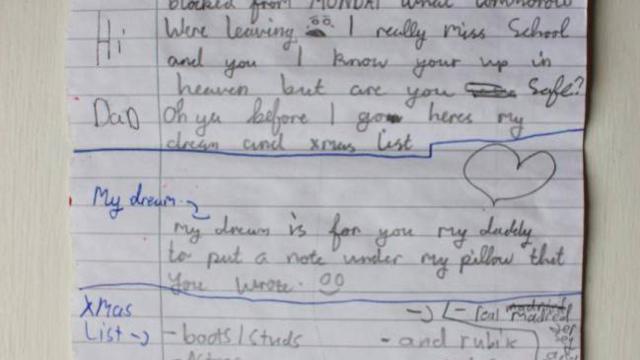 blocked from MONDAY what tommorow
Hi Were leaving I really miss School
and you I know your up in
heaven but are you safe?
DaD Oh ya before I go heres my
dream and xmas list
My dream
my dream is for you my daddy
to put a note under my pillow that
you wrote.
Xmas - real madrid
List -> - boots/studs - and rubik